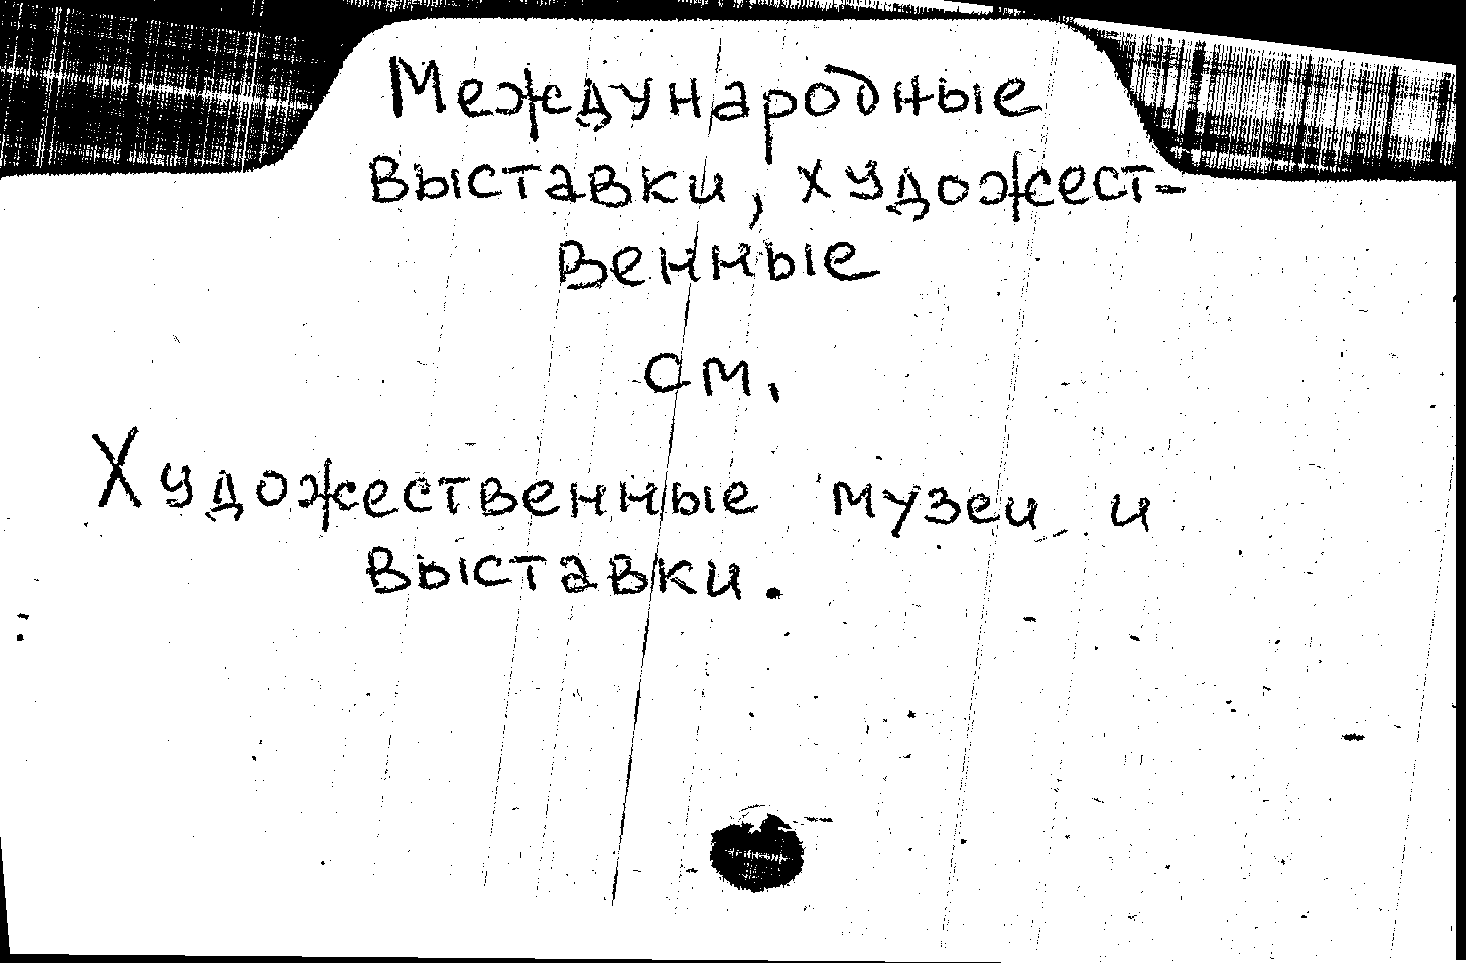 Международные
выставки, художест-
венные
см.
Художественные музеи и
выставки.